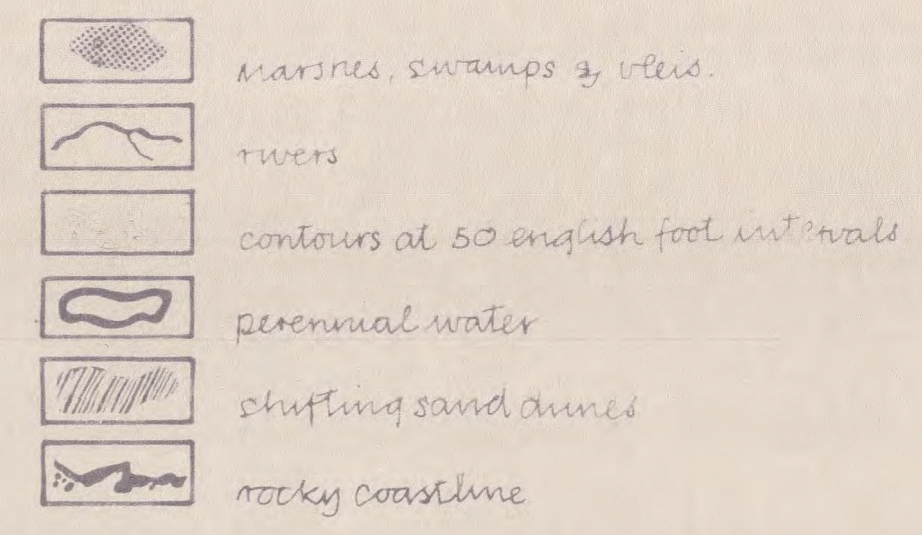 marshes, swamps & vleis.
rivers
contours at 50 english foot intervals
perennial water
shifting sand dunes
rocky coastline